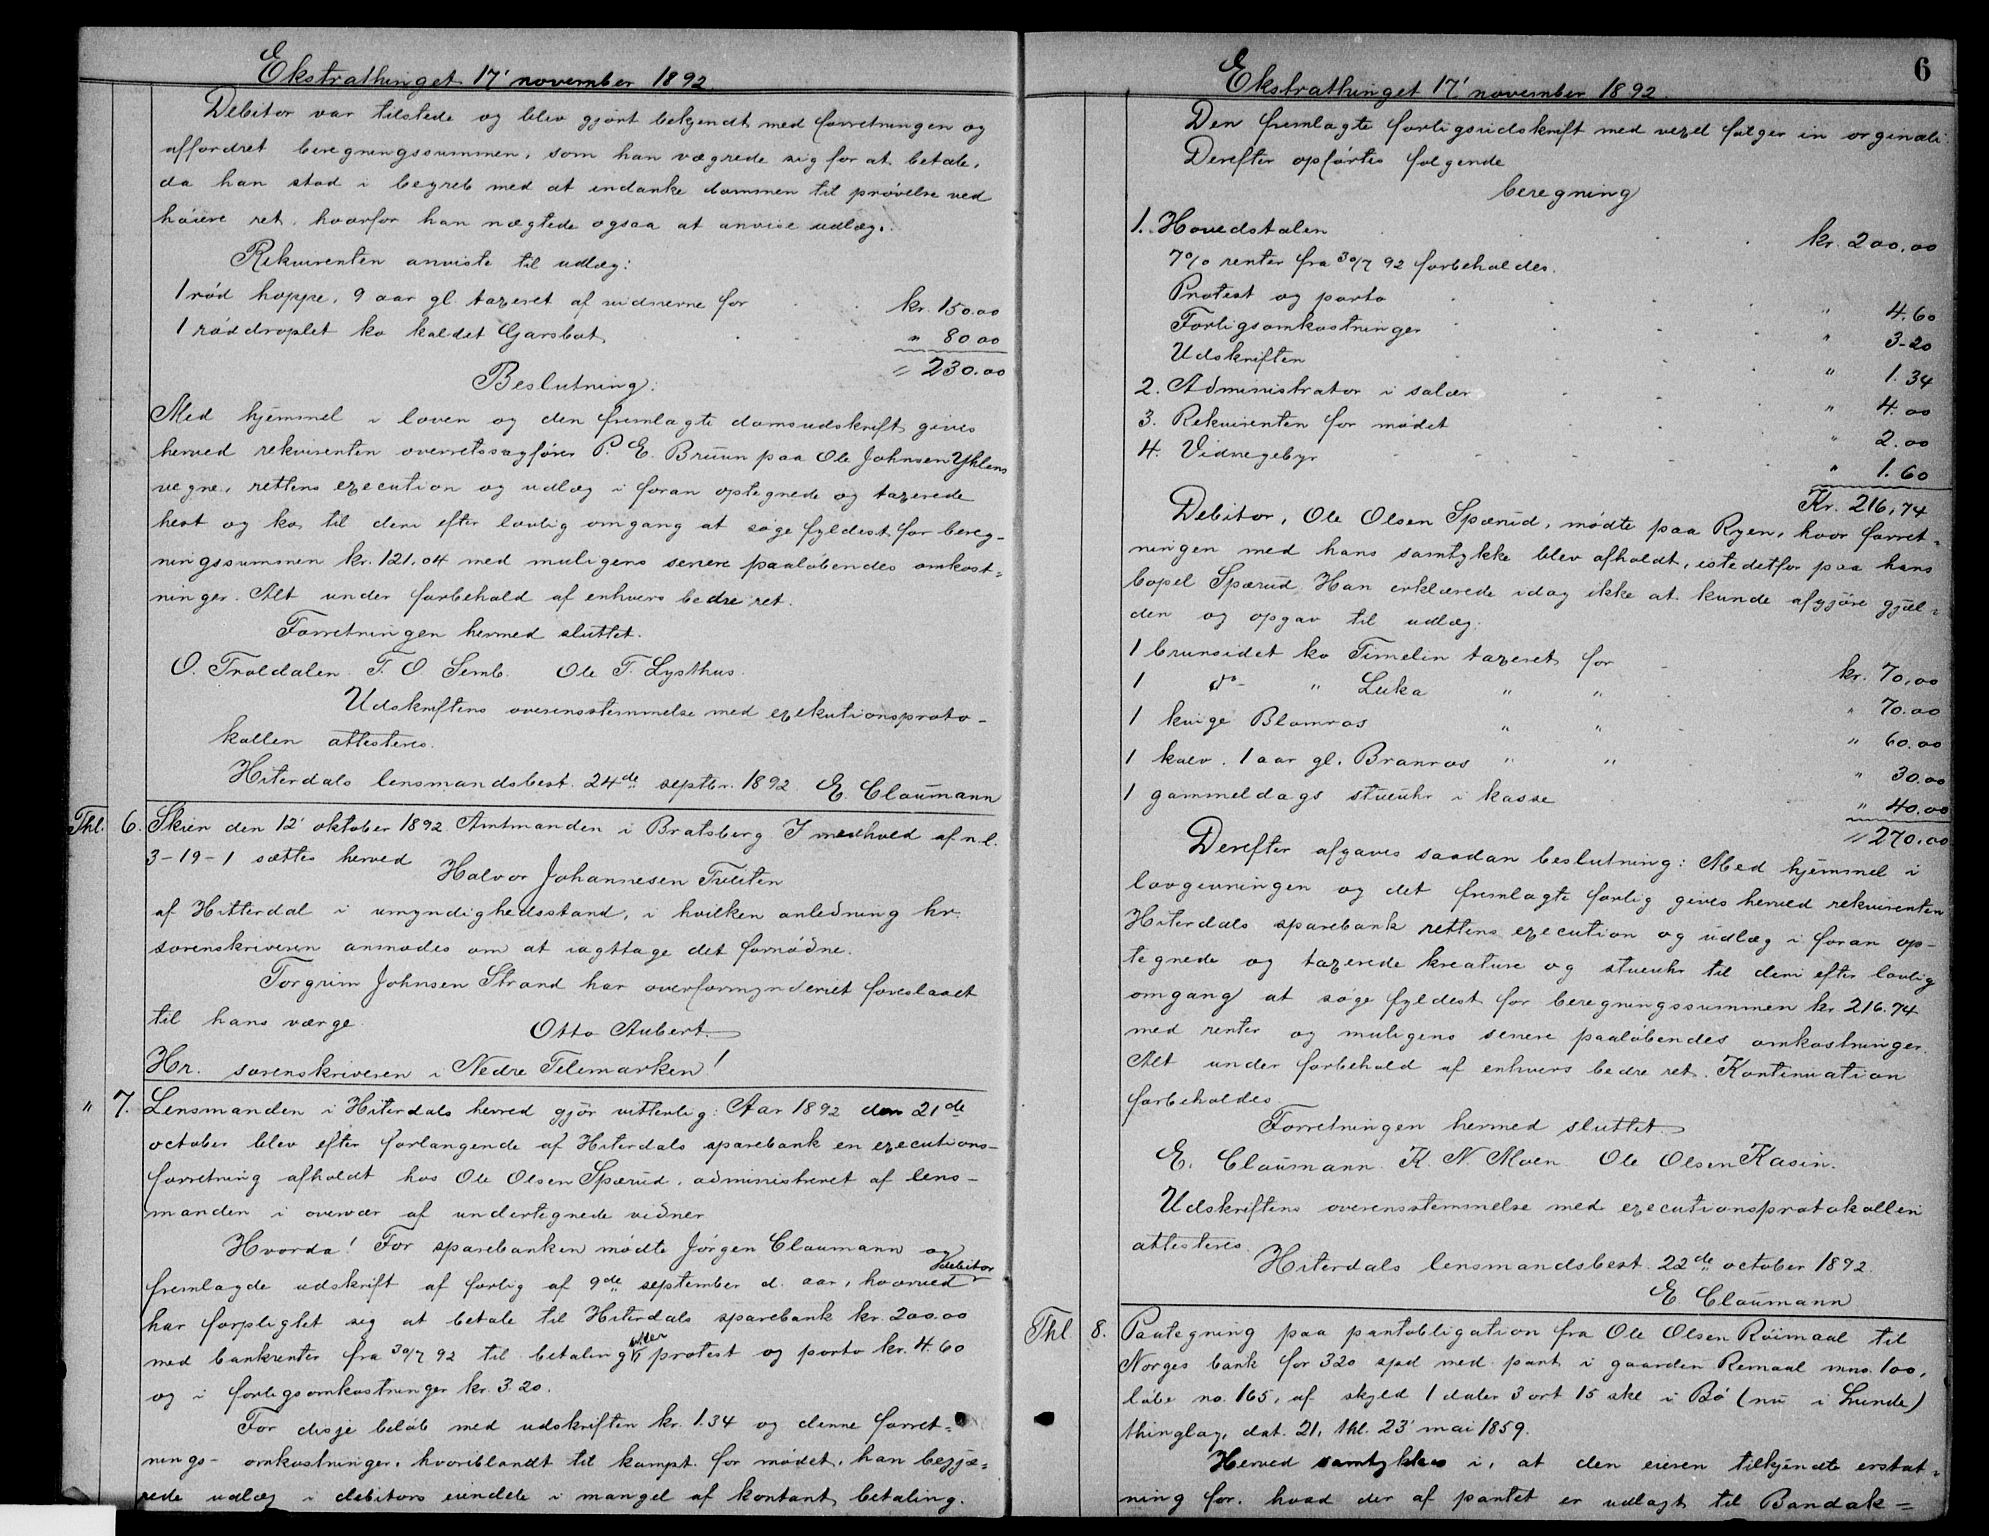 Ekstrathinget 17' november 1892.
Debitor var tilstede og blev gjort bekjendt med forretningen og
affordret beregningssummen, som han vægrede sig for at betale,
da han stod i begreb med at indanke dommen til prøvelse ved
høiere ret, hvorfor han nægtede ogsaa at anvise udlæg.
Rekvirenten anviste til udlæg:
1 rød hoppe, 9 aar gl. taxeret af vidnerne for kr. 150.00
1 røddroplet ko kaldet Garsbot " 80.00
" 230.00
Beslutning:
Med hjemmel i loven og den fremlagte domsudskrift gives
herved rekvirenten overretssagfører P. E. Bruun paa Ole Johnsen Yhlens
vegne, rettens execution og udlæg i foran optegnede og taxerede
hest og ko, til deri efter lovlig omgang at søge fyldest for bereg-
ningssummen kr. 121.04 med muligens senere paaløbendes omkost-
ninger. Alt under forbehold af enhvers bedre ret.
Forretningen hermed sluttet.
O. Troldalen. T. O. Semb. Ole T. Lysthus.
Udskriftens overensstemmelse med exekutionsproto-
kollen attesteres.
Hiterdals lensmandsbest. 24de septbr. 1892 E. Claumann
Thl. 6. Skien den 12' oktober 1892 Amtmanden i Bratsberg. I medhold af n.l.
3-19-1 sættes herved
Halvor Johannesen Tveiten
af Hitterdal i umyndighedsstand, i hvilken anledning hr.
sorenskriveren anmodes om at iagttage det fornødne.
Torgrim Johnsen Strand har overformynderiet foreslaaet
til hans værge.
Otto Aubert.
Hr. sorenskriveren i Nedre Telemarken!
" 7. Lensmanden i Hiterdals herred gjør vitterlig: Aar 1892 den 21de
october blev efter forlangende af Hiterdals sparebank en executions-
forretning afholdt hos Ole Olsen Spærud, administreret af lens-
manden i overvær af undertegnede vidner
Hvorda! For sparebanken mødte Jørgen Claumann og
fremlagde udskrift af forlig af 9de september d. aar, hvorved debitor
har forpligtet sig at betale til Hiterdals sparebank kr. 200.00
med bankrenter fra 30/7 92 til betaling sker protest og porto kr. 4.60
og i forligsomkostninger kr. 3.20.
For disse beløb med udskriften kr. 1.34 og denne forret-
nings-omkostninger, hvoriblandt til kompt. for mødet, han begjæ-
rede udlæg i debitors eiendele i mangel af kontant betaling.
Ekstrathinget 17' november 1892.
6
Den fremlagte forligsudskrift med vexel følger in orginali.
Derefter opførtes følgende
beregning
1. Hovedstolen kr. 200.00
7% renter fra 30/7 92 forbeholdes.
Protest og porto " 4.60
Forligsomkostninger " 3-20
Udskriften " 1.34
2. Administrator i salær " 4.00
3. Rekvirenten for mødet " 2.00
4. Vidnegebyr " 1.60
Kr. 216,74
Debitor, Ole Olsen Spærud, mødte paa Ryen, hvor forret-
ningen med hans samtykke blev afholdt, istedetfor paa hans
bopel Spærud. Han erklærede idag ikke at kunde afgjøre gjæl-
den og opgav til udlæg:
1 brunsidet ko Timelin taxeret for kr. 70,00
1 do " Luka " " " 70.00
1 kvige Blomros " " " 60.00
1 kalv. 1 aar gl. Branros " " " 30.00
1 gammeldags stueuhr i kasse " 40.00
" 270.00
Derefter afgaves saadan beslutning: Med hjemmel i
lovgivningen og det fremlagte forlig gives herved rekvirenten
Hiterdals sparebank rettens execution og udlæg i foran op-
tegnede og taxerede kreature og stueuhr til deri efter lovlig
omgang at søge fyldest for beregningssummen kr. 216.74
med renter og muligens senere paaløbendes omkostninger.
Alt under forbehold af enhvers bedre ret. Kontinuation
forbeholdes.
Forretningen hermed sluttet.
E. Claumann. K. N. Moen. Ole Olsen Kasin.
Udskriftens overensstemmelse med executionsprotokollen
attesteres.
Hiterdals lensmandsbest. 22de october 1892.
E Claumann
Thl. 8. Paategning paa pantobligation fra Ole Olsen Röimaal til
Norges bank for 320 spd med pant i gaarden Remaal mno. 100,
løbe no. 165, af skyld 1 daler 3 ort 15 skl i Bø (nu i Lunde)
thinglag, dat. 21, thl. 23' mai 1859.
Herved samtykkes i, at den eieren tilkjendte erstat-
ning for, hvad der af pantet er udlagt til Bandak-